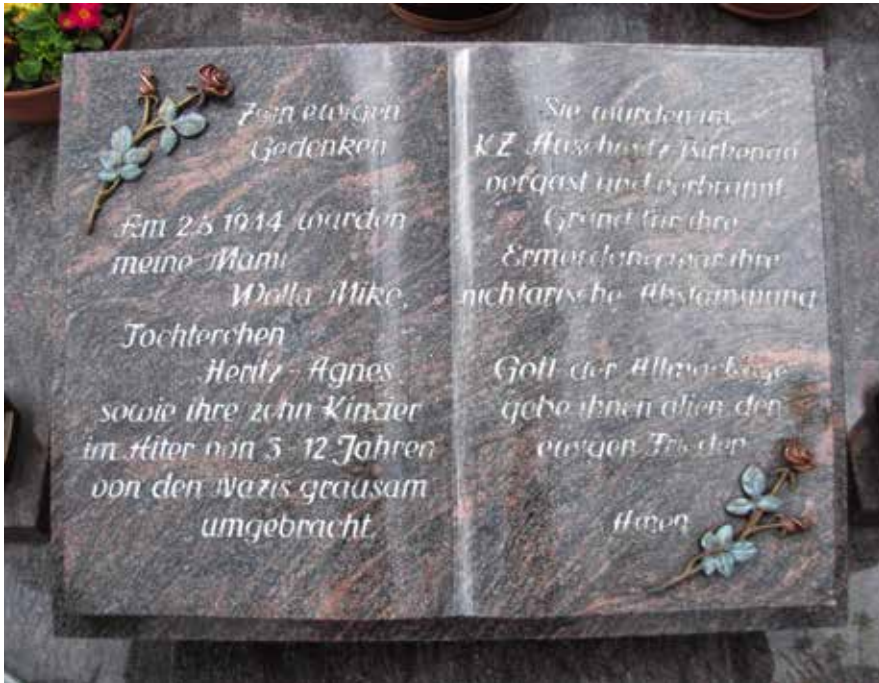 Zum ewigen
Gedenken
Am 2.8.1944 wurden
meine Mami
Walla Mike,
Töchterchen
Heritz-Agnes
sowie ihre zehn Kinder
im Alter von 3-12 Jahren
von den Nazis grausam
umgebracht
Sie wurden im
KZ Auschwitz-Birkenau
vergast und verbrannt
Grund für ihre
Ermordung war ihre
nichtarische Abstammung
Gott der Allmächtige
gebe ihnen allen den
ewigen Frieden
Amen